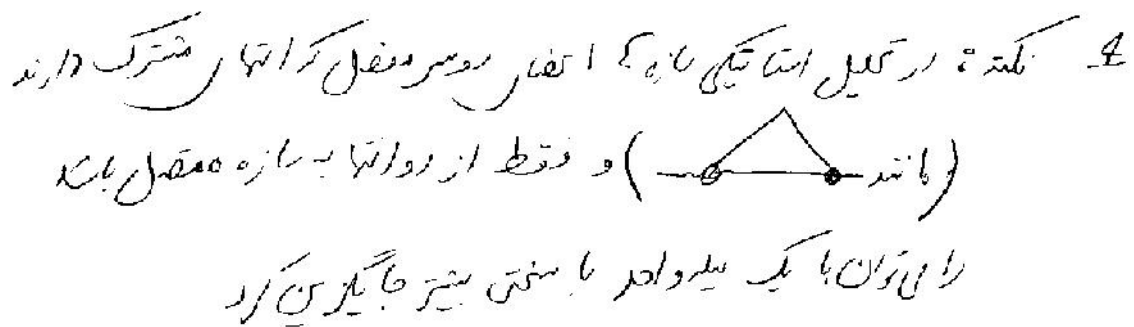 نکته: در تحلیل استاتیکی سازه‌ها اعضای دوسر مفصل که انتهای مشترک دارند
(مانند) و فقط از دو انتها به سازه متصل باشد
را می‌توان با یک میله واحد با سختی بیشتر جایگزین کرد